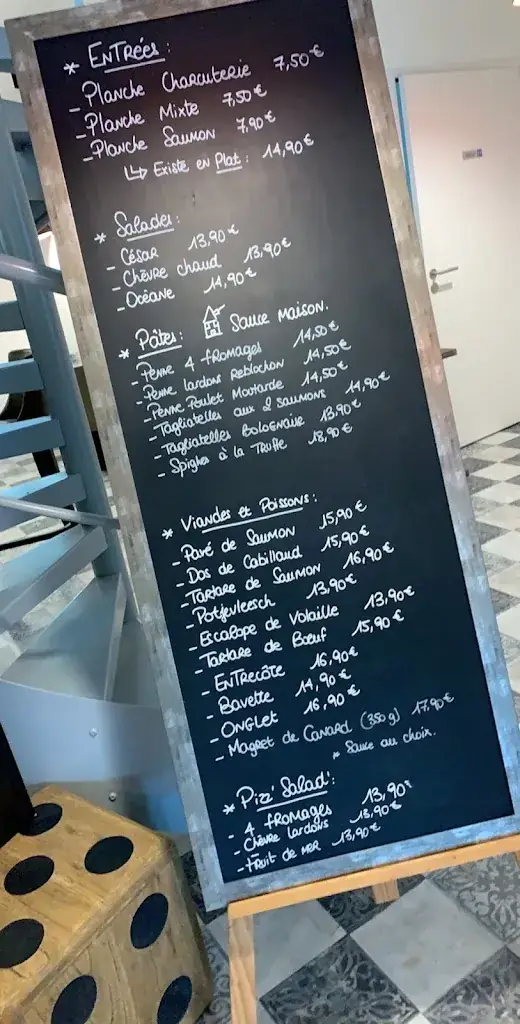 * Entrées :
- Planche Charcuterie 7,50€
- Planche Mixte 7,50€
- Planche Saumon 7,90€
↳ Existe en Plat : 14,90€
* Salades :
- César 13,90€
- Chèvre chaud 13,90€
- Océane 14,90€
* Pâtes : Sauce Maison.
- Penne 4 fromages 14,50€
- Penne lardons Reblochon 14,50€
- Penne Poulet Moutarde 14,50€
- Tagliatelles aux 2 saumons 14,90€
- Tagliatelles Bolognaise 13,90€
- Spighes à la Truffe 18,90€
* Viandes et Poissons :
- Pavé de Saumon 15,90€
- Dos de Cabillaud 15,90€
- Tartare de Saumon 16,90€
- Potjevleesch 13,90€
- Escalope de Volaille 13,90€
- Tartare de Bœuf 15,90€
- Entrecôte 16,90€
- Bavette 14,90€
- Onglet 16,90€
- Magret de Canard (350g) 17,90€
* Sauce au choix.
* Pizz' Salad' :
- 4 fromages 13,90€
- Chèvre lardons 13,90€
- Fruit de mer 13,90€